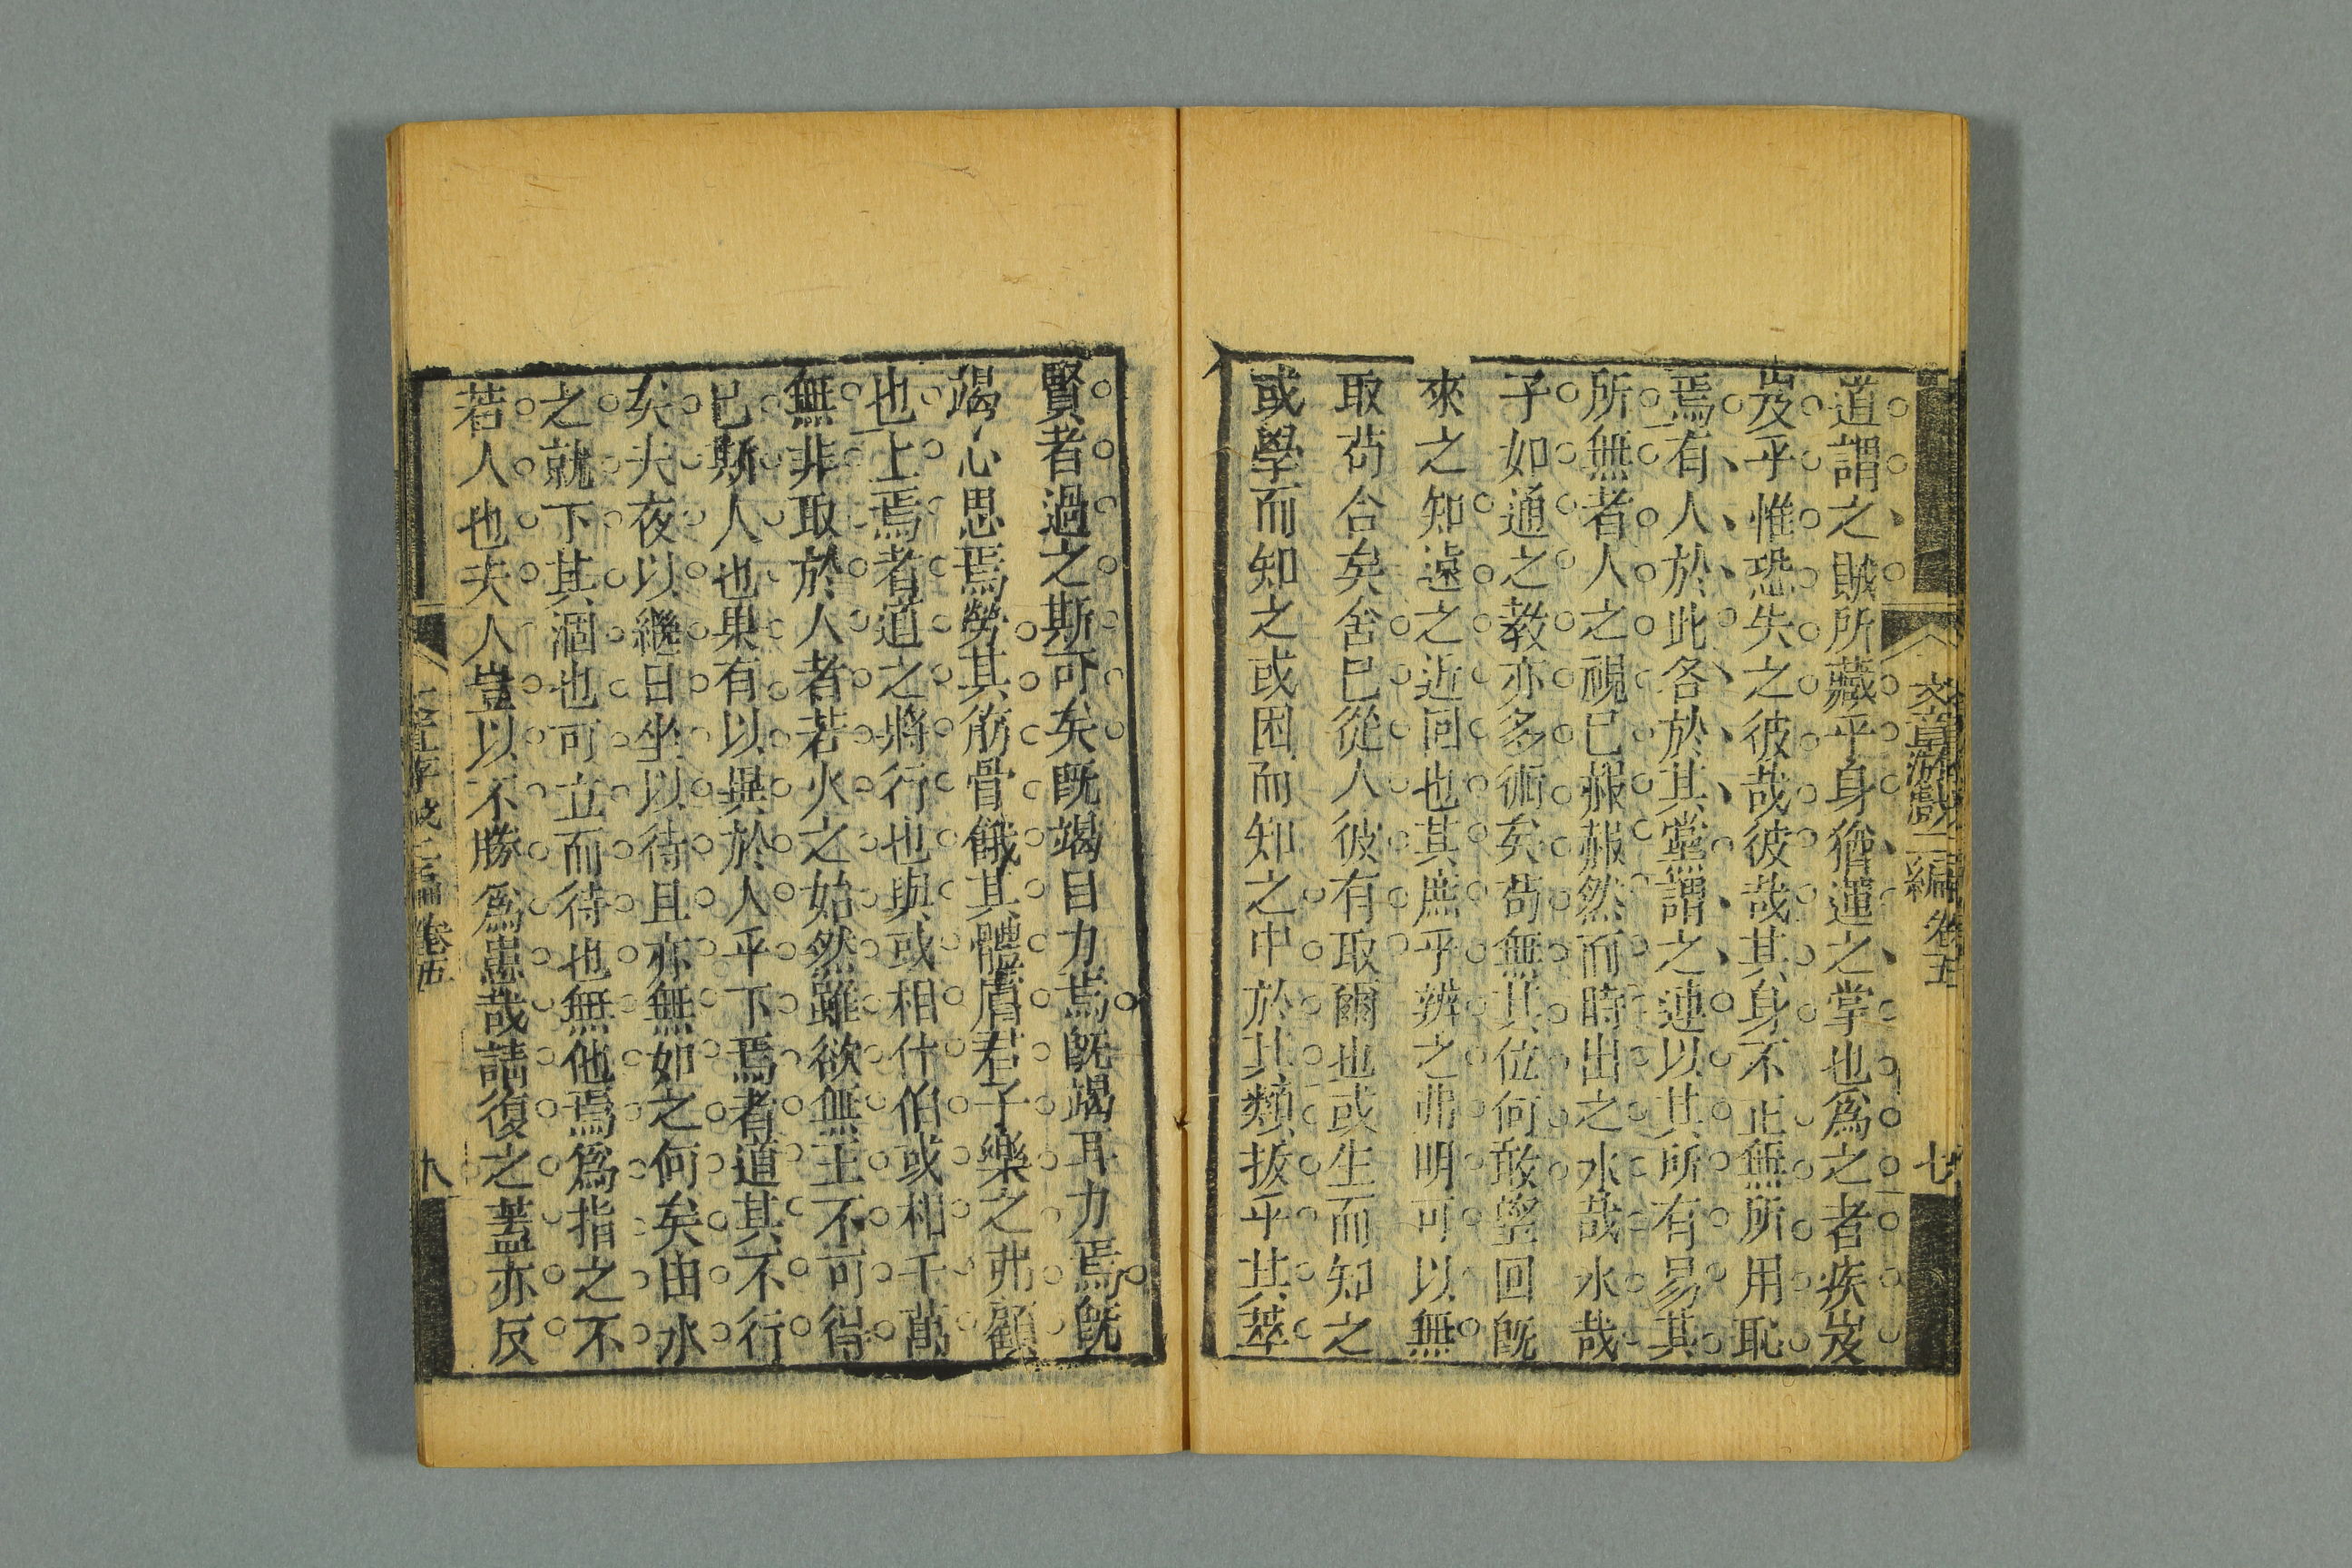 文章游戲二編 卷五 七
道謂之賊所藏乎身猶運之掌也爲之者疾岌
岌乎惟恐失之彼哉彼哉其身不正無所用恥
焉有人於此各於其黨謂之連以其所有易其
所無者人之視已赧赧然而時出之水哉水哉
子如通之教亦多術矣苟無其位何敢望回旣
來之知遠之近回也其庶乎辨之弗明可以無
取苟合矣舍已從人彼有取爾也或生而知之
或學而知之或困而知之中於其類拔乎其萃
賢者過之斯可矣旣竭目力焉旣竭耳力焉旣
竭心思焉勞其筋骨餓其體膚君子樂之弗顧
也上焉者道之將行也與或相什伯或相千萬
無非取於人者若火之始然雖欲無王不可得
已斯人也果有以異於人乎下焉者道其不行
矣夫夜以繼日坐以待旦亦無如之何矣由水
之就下其涸也可立而待也無他焉爲指之不
若人也夫人豈以不勝爲患哉請復之蓋亦反
卷五 八